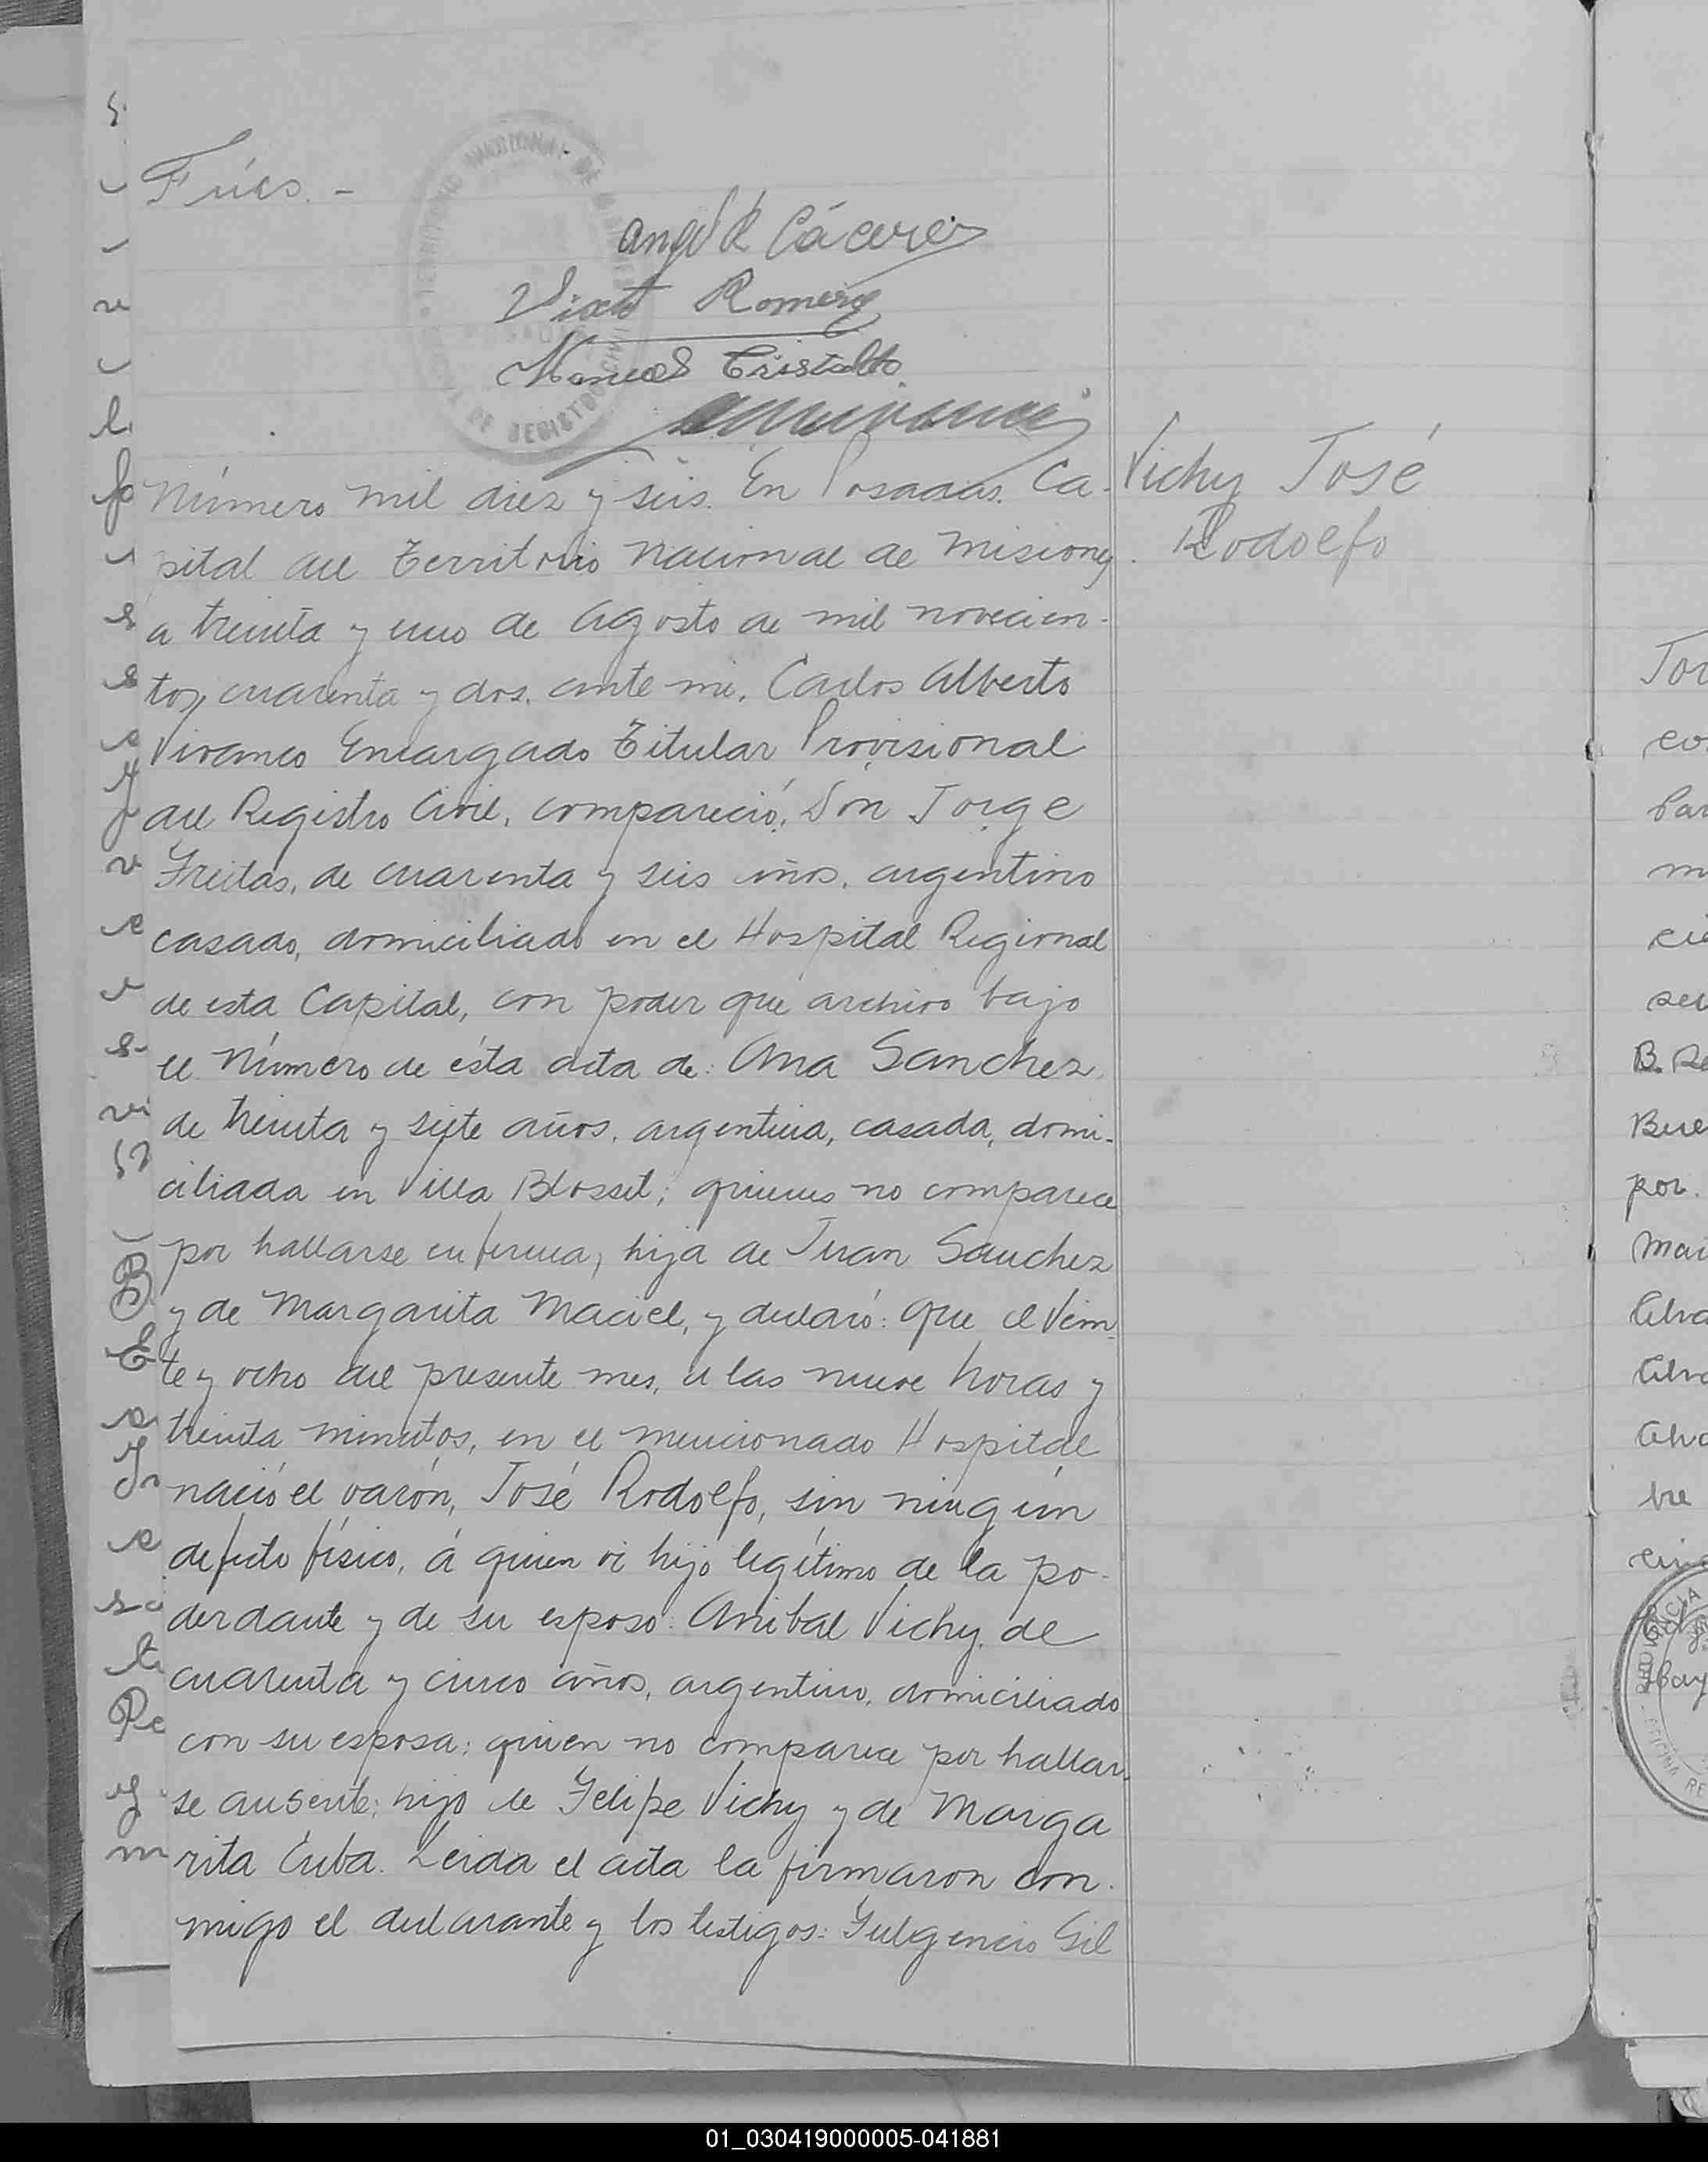 Frías. -
Angel R Cáceres
Sixto Romero
Manuel Cristaldo
Número mil diez y seis. En Posadas. Ca-
pital del Territorio Nacional de Misiones
a treinta y uno de Agosto de mil novecien-
tos, cuarenta y dos, ante mi, Carlos Alberto
Vivanco Encargado Titular Provisional
del Registro Civil, compareció, Don Jorge
Freitas, de cuarenta y seis años, argentino
casado, domiciliado en el Hospital Regional
de esta Capital, con poder que archivo bajo
el Número de ésta acta de: Ana Sanchez,
de treinta y siete años, argentina, casada, domi-
ciliada en Villa Blosset; quienes no comparece
por hallarse enferma, hija de Juan Sanchez
y de Margarita Maciel, y declaró: que el Vein-
te y ocho del presente mes, a las nueve horas y
treinta minutos, en el mencionado Hospital
nació el varón, José Rodolfo, sin ningún
defecto físico, á quien vi hijo legítimo de la po-
derdante y de su esposo: Anibal Vichy, de
cuarenta y cinco años, argentino, domiciliado
con su esposa; quien no comparece por hallar-
se ausente; hijo de Felipe Vichy y de Marga
rita Cuba. Leida el acta la firmaron con-
migo el declarante y los testigos: Fulgencio Gil
Vichy José
Rodolfo
01_030419000005-041881